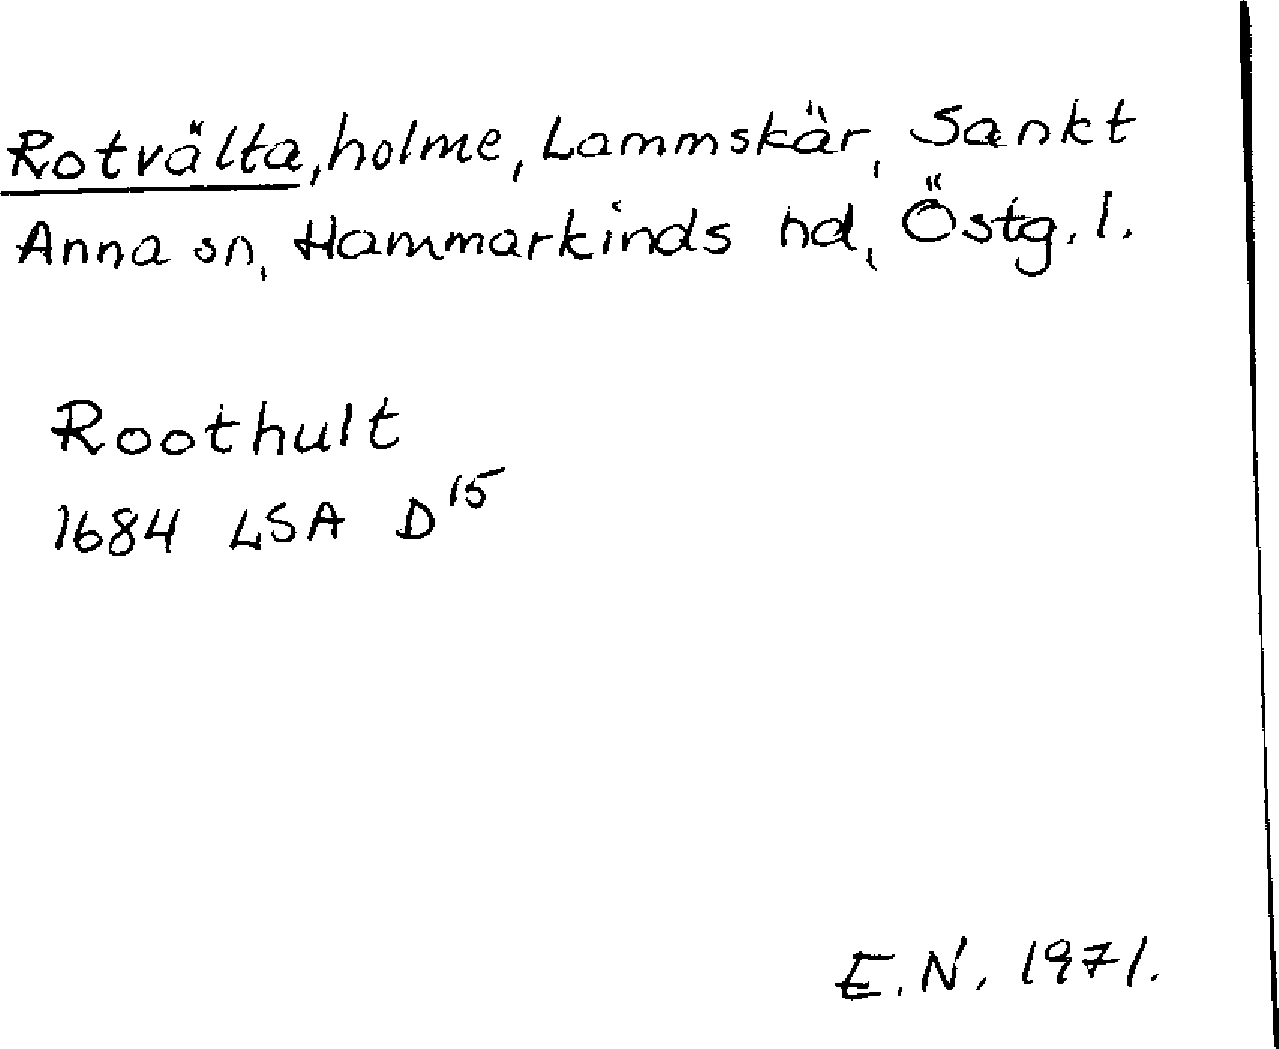 Rotvälta, holme, Lammskär, Sankt
Anna sn, Hammarkinds hd, Östg. l.
Roothult
1684 LSA D15
E.N. 1971.